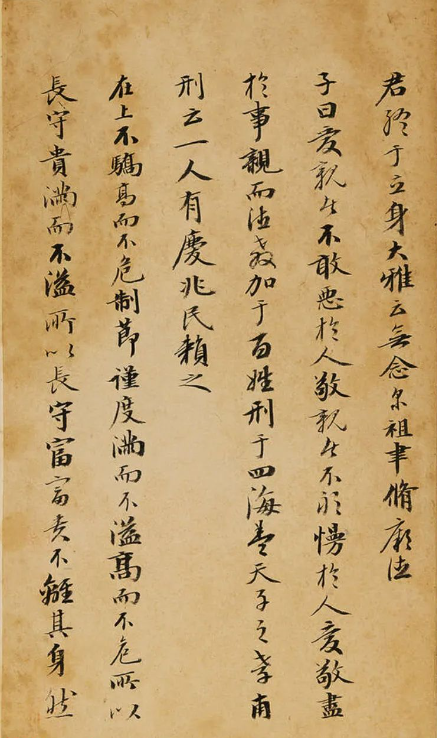 君終于立身大雅云無念尔祖聿脩厥德
子曰愛親者不敢惡於人敬親者不敢慢於人愛敬盡
於事親而德教加于百姓刑于四海蓋天子之孝甫
刑云一人有慶兆民賴之
在上不驕高而不危制節謹度滿而不溢高而不危所以
長守貴滿而不溢所以長守富富貴不離其身然